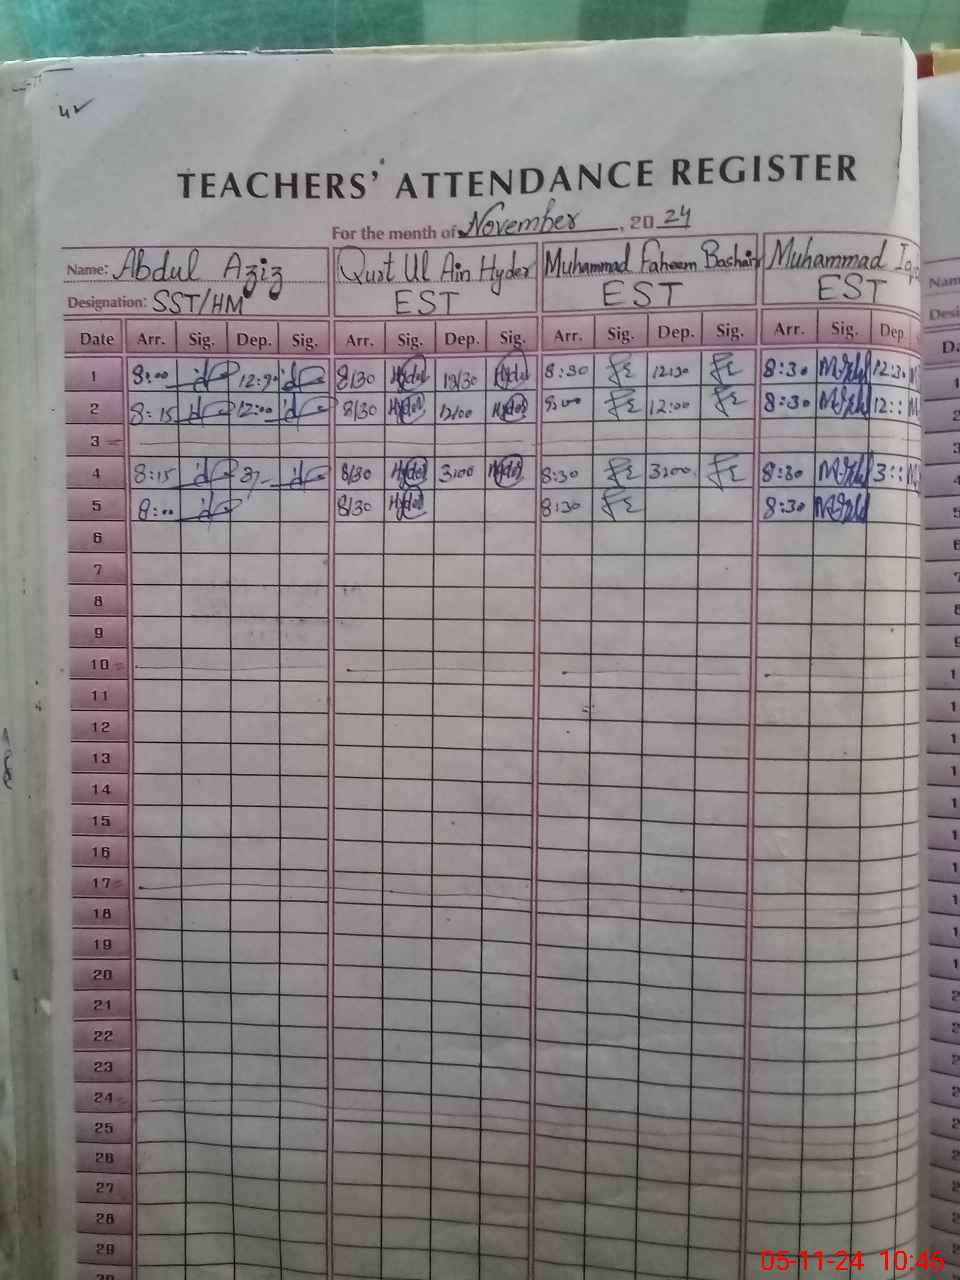 4
TEACHERS' ATTENDANCE REGISTER
For the month of November, 2024
Name: Abdul Aziz Qurt Ul Ain Hyder Muhammad Faheem Bashair Muhammad
Designation: SST/HM EST EST EST
Date Arr. Sig. Dep. Sig. Arr. Sig. Dep. Sig. Arr. Sig. Dep. Sig. Arr. Sig. Dep.
1 8:00 8/30 Hyder 12/30 Hyder 8:30 12:30 8:30 12:30
2 8:15 12:00 8/30 Hyder 12/00 Hyder 8:00 12:00 8:30 12::
3
4 8:15 8/30 Hyder 3:00 Hyder 8:30 3:00 8:30 3::
5 8:00 8/30 Hyder 8:30 8:30
6
7
8
9
10
11
12
13
14
15
16
17
18
19
20
21
22
23
24
25
26
27
28
29
05-11-24 10:45